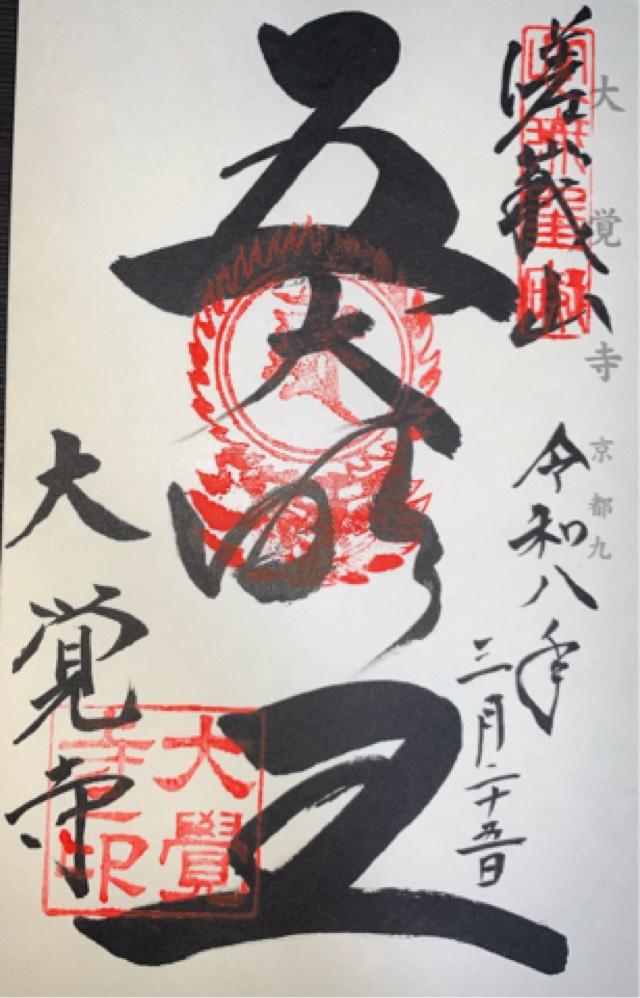 大覚寺 京都九
嵯峨山
令和八年
三月二十五日
五大明王
大覚寺
大覺
寺印